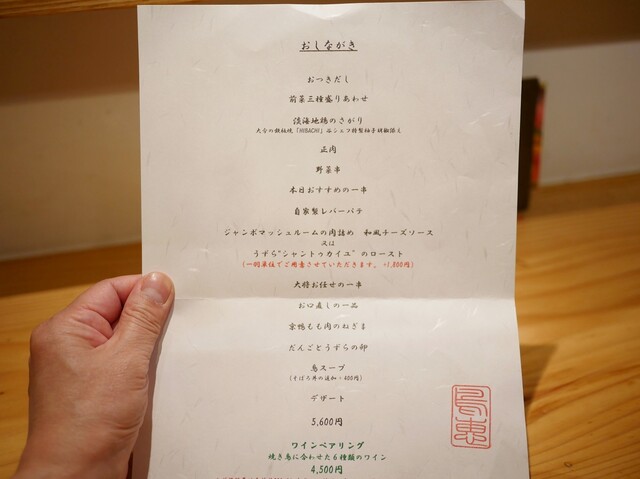 おしながき
おつきだし
前菜三種盛りあわせ
淡海地鶏のさがり
大分の鉄板焼「HIBACHI」谷シェフ特製柚子胡椒添え
正肉
野菜串
本日おすすめの一串
自家製レバーパテ
ジャンボマッシュルームの肉詰め 和風チーズソース
又は
うずら"シャントゥカイユ" のロースト
(一羽単位でご用意させていただきます。 +1,800円)
大将お任せの一串
お口直しの一品
京鴨もも肉のねぎま
だんごとうずらの卵
鳥スープ
(そぼろ丼の追加+400円)
デザート
5,600円
ワインペアリング
焼き鳥に合わせた6種類のワイン
4,500円
鳥恵